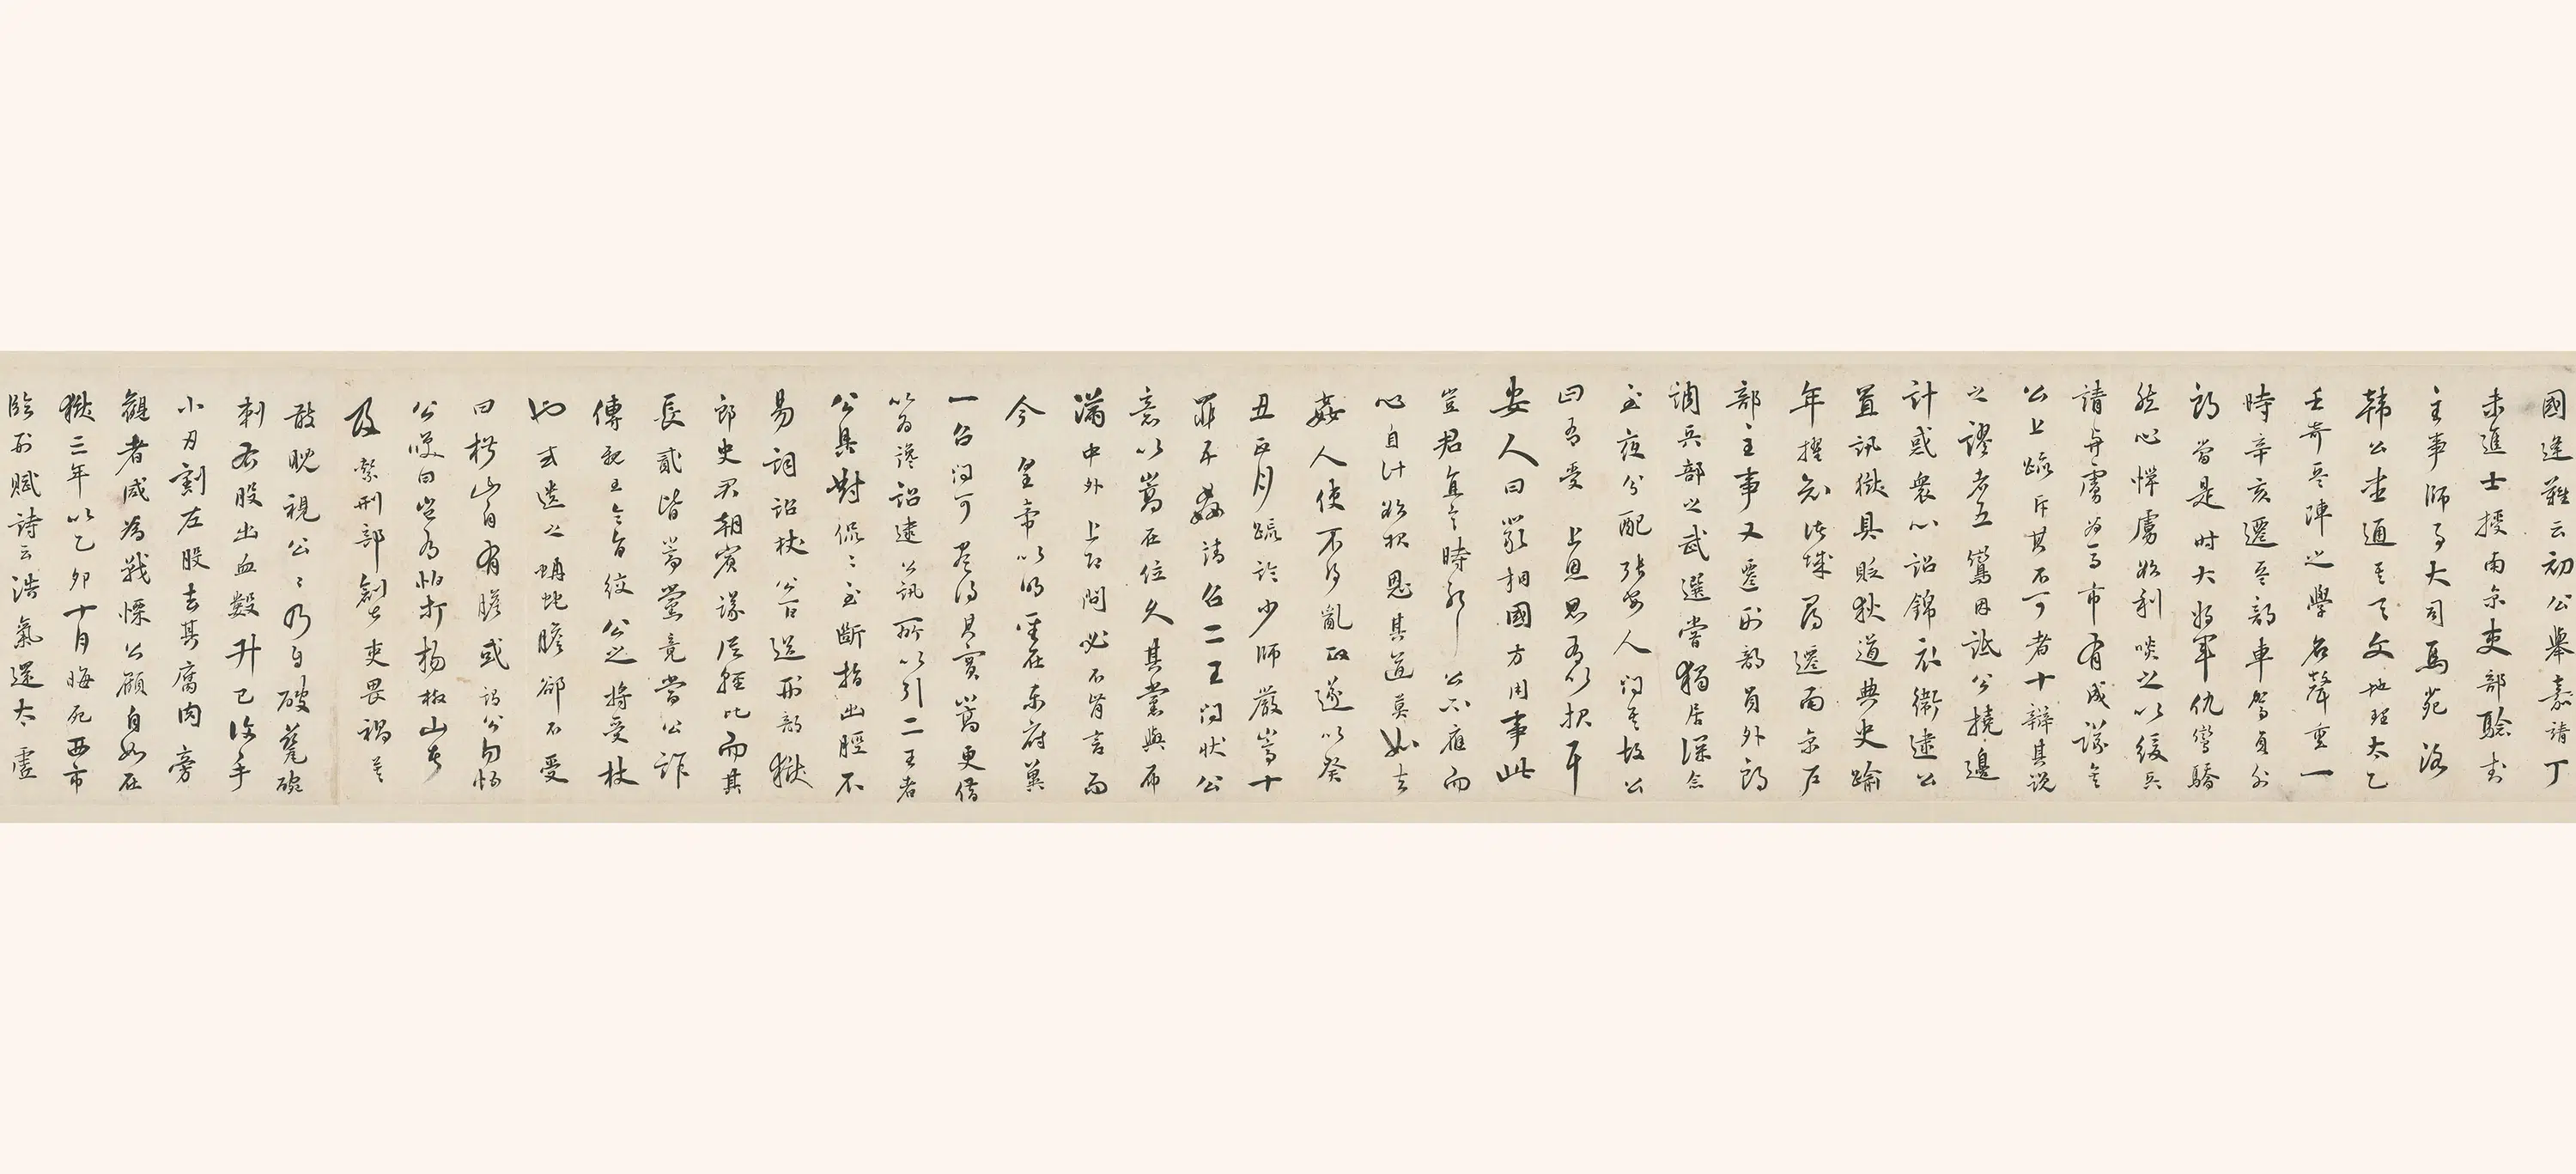 國逢難云初公舉嘉靖丁
未進士授南京吏部驗封
主事師事大司馬苑洛
韓公盡通其天文地理太乙
壬奇兵陣之學名聲重一
時辛亥遷兵部車駕員外
郎當是時大將軍仇鸞驕
然心憚虜欲利啖之以緩兵
請與虜為馬市有成議矣
公上疏斥其不可者十辯其說
之謬者五鸞因詆公撓邊
計惑眾心詔錦衣衛逮公
置訊獄具貶狄道典史踰
年擢知諸城尋遷南京戶
部主事又遷刑部員外郎
調兵部之武選嘗獨居深念
至夜分配張安人問其故公
曰吾受 上恩思有以報耳
安人曰嚴相國方用事此
豈君直言時耶公不應而
心自計欲報恩其道莫如去
姦人使不得亂政遂以癸
丑正月疏論少師嚴嵩十
罪五姦請召二王問狀公
意以嵩在位久其黨與布
滿中外 上即問必不肯言而
今 皇帝以明聖在東府冀
一召問可盡得其實嵩更借
以為讒詔逮公訊所以引二王者
公具對侃侃至斷指出脛不
易詞詔杖公百送刑部獄
郎史君朝賓議從輕比而其
長貳皆嵩黨竟當公詐
傳親王令旨絞公之將受杖
也或遺之蚺蛇膽卻不受
曰椒山自有膽或謂公勿怕
公嘆曰豈有怕打楊椒山者
及繫刑部創甚吏畏禍莫
敢眤視公公乃自破甆碗
刺右股出血數升已復手
小刀割左股去其腐肉旁
觀者咸為戰慄公顧自如在
獄三年以乙卯十月晦死西市
臨刑賦詩云浩氣還太虛